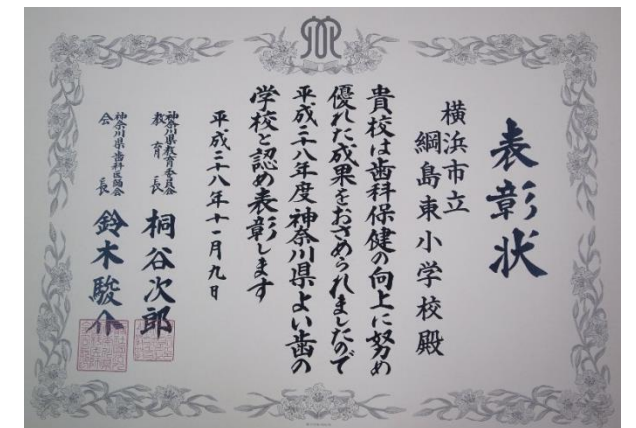 表彰状
横浜市立
綱島東小学校殿
貴校は歯科保健の向上に努め
優れた成果をおさめられましたので
平成二八年度神奈川県よい歯の
学校と認め表彰します
平成二八年十一月九日
神奈川県教育委員会
教育長 桐谷次郎
神奈川県歯科医師会
会長 鈴木駿介